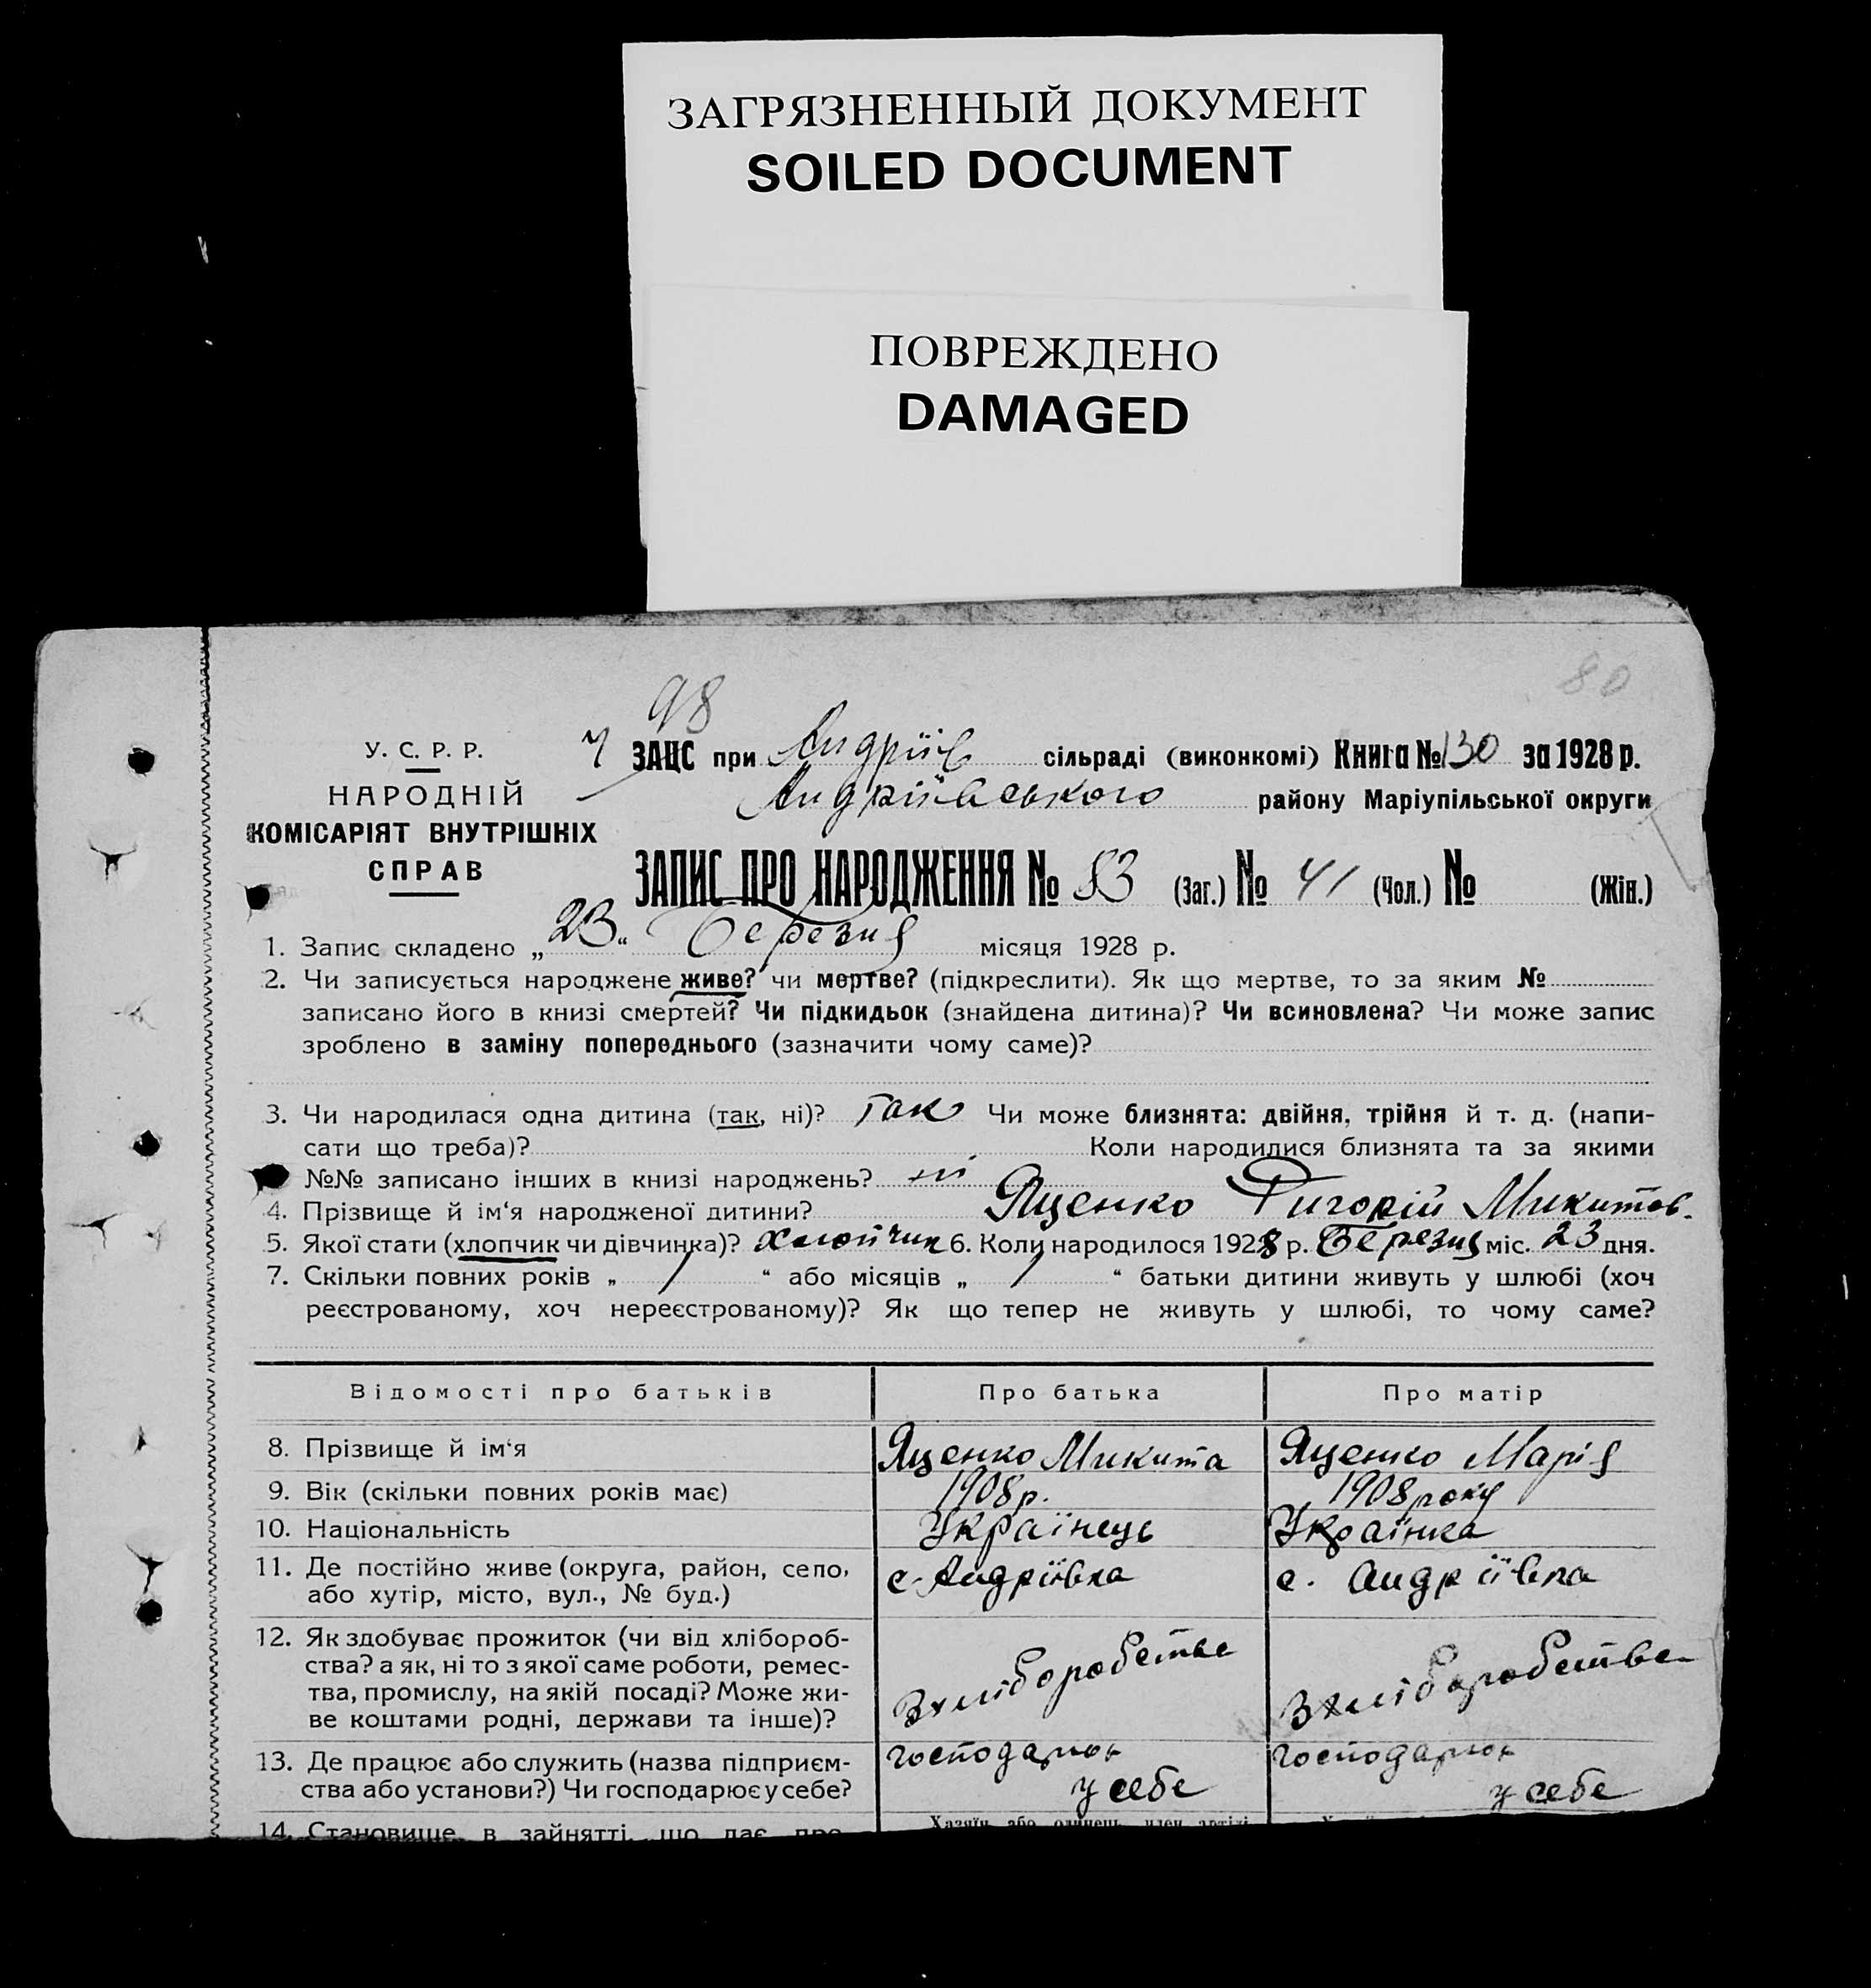 ЗАГРЯЗНЕННЫЙ ДОКУМЕНТ
SOILED DOCUMENT
ПОВРЕЖДЕНО
DAMAGED
80
98
У. С. Р. Р.
НАРОДНІЙ
КОМІСАРІЯТ ВНУТРІШНІХ
СПРАВ
ЗАЦС при Андріїв сільраді (виконкомі) Книга № 130 за 1928 р.
Андріївського району Маріупільської округи
ЗАПИС ПРО НАРОДЖЕННЯ № 83 (Заг.) № 41 (Чол.) № (Жін.)
1. Запис складено „23“ Березня місяця 1928 р.
2. Чи записується народжене живе? чи мертве? (підкреслити). Як що мертве, то за яким №
записано його в книзі смертей? Чи підкидьок (знайдена дитина)? Чи всиновлена? Чи може запис
зроблено в заміну попереднього (зазначити чому саме)?
3. Чи народилася одна дитина (так, ні)? так Чи може близнята: двійня, трійня й т. д. (напи-
сати що треба)? Коли народилися близнята та за якими
№№ записано інших в книзі народжень? ні
4. Прізвище й ім‘я народженої дитини? Яценко Григорій Микитов.
5. Якої стати (хлопчик чи дівчинка)? Хлопчик 6. Коли народилося 1928 р. Березня міс. 23 дня.
7. Скільки повних років „ “ або місяців „ “ батьки дитини живуть у шлюбі (хоч
реєстрованому, хоч нереєстрованому)? Як що тепер не живуть у шлюбі, то чому саме?
Відомості про батьків Про батька Про матір
8. Прізвище й ім‘я Яценко Микита Яценко Марія
9. Вік (скільки повних років має) 1908 р. 1908 року
10. Національність Українець Українка
11. Де постійно живе (округа, район, село, с. Андріївка с. Андріївка
або хутір, місто, вул., № буд.)
12. Як здобуває прожиток (чи від хлібороб-
ства? а як, ні то з якої саме роботи, ремес-
тва, промислу, на якій посаді? Може жи- З хліборобства З хліборобства
ве коштами родні, держави та інше)?
13. Де працює або служить (назва підприєм-
ства або установи?) Чи господарює у себе? у себе у себе
14. Становище в зайнятті, що дає про- Хазяїн або одинець, член артілі